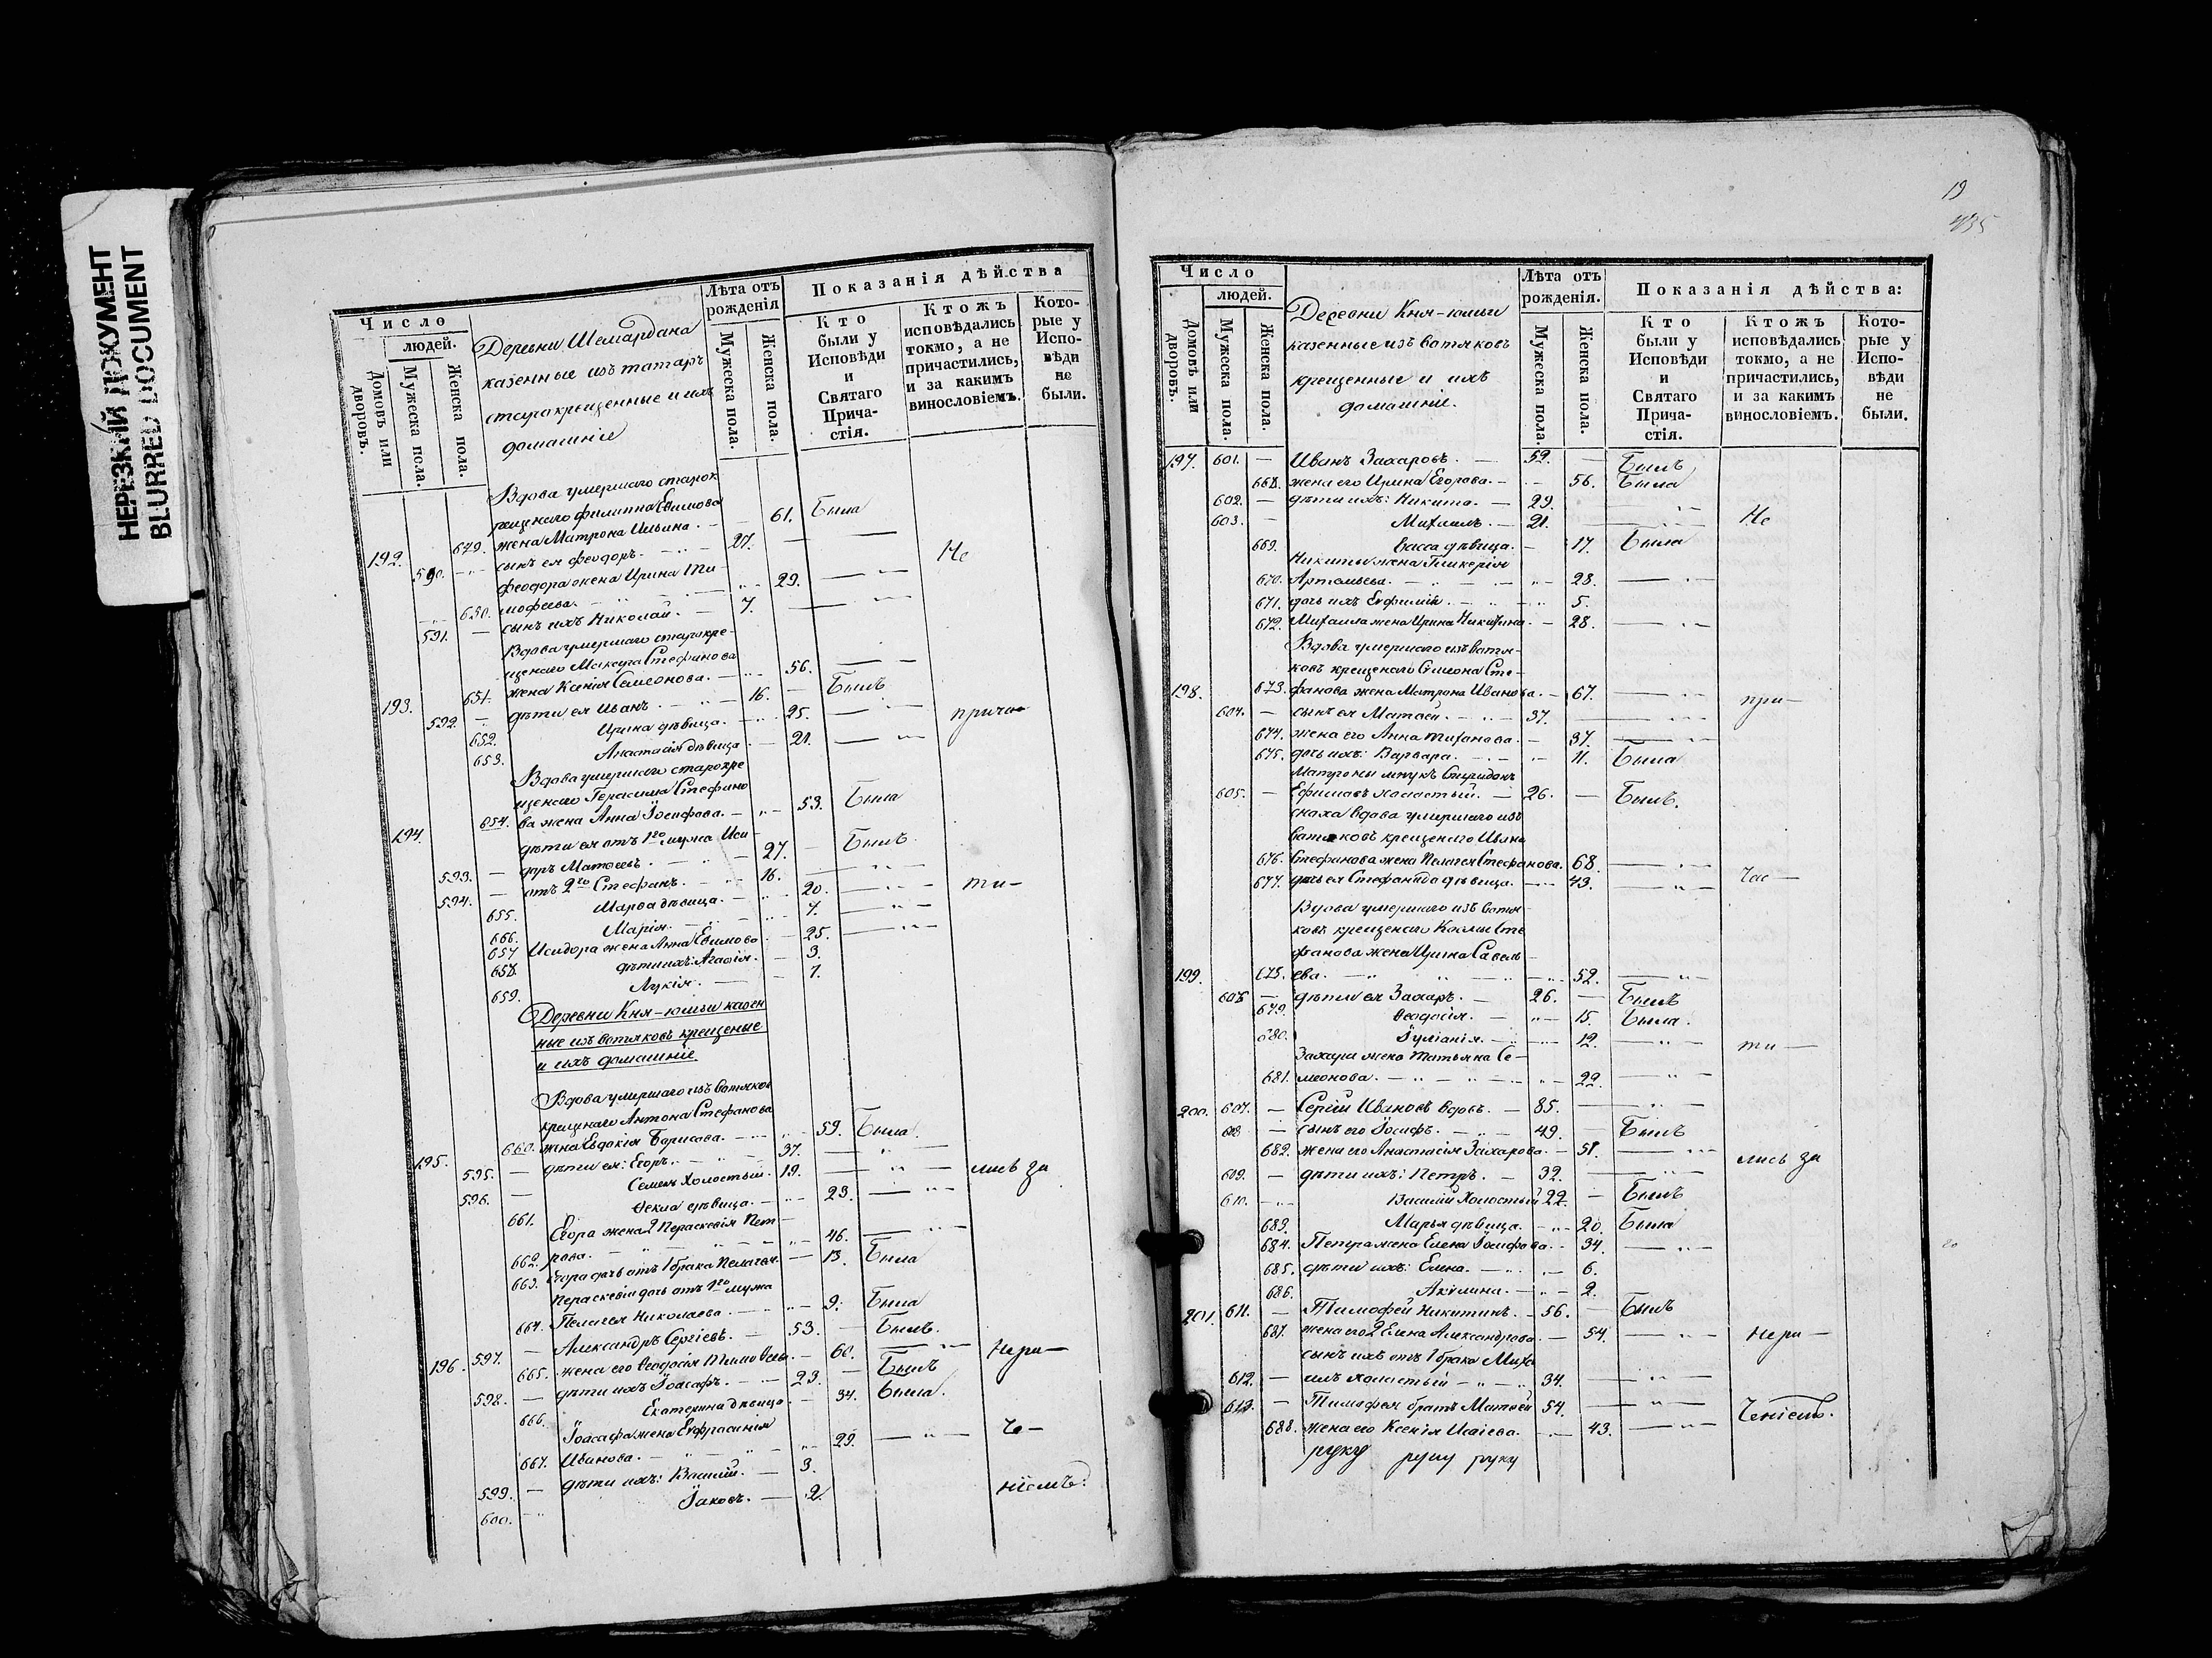 НЕРЕЗКИЙ ДОКУМЕНТ
BLURRED DOCUMENT
Число
людей.
Домовъ или дворовъ.
Мужеска пола.
Женска пола.
Деревни Шемардана
казенные изъ татаръ
старокрещенные и ихъ
домашніе
Лѣта отъ рожденія
Мужеска пола.
Женска пола.
Показанія дѣйства
Кто были у Исповѣди и Святаго Причастія.
Ктожъ исповѣдались токмо, а не причастились, и за какимъ винословіемъ.
Которые у Исповѣди не были.
Вдова умершаго старок
рещенаго Филиппа Евимова
192. 649. жена Матрона Ильина. — 61. Была
590. сынъ ея Феодоръ. — 27. —
Феодора жена Ирина Ти-
650. мофеева. — 29. — Не
591. — сынъ ихъ Николай. — 7. —
Вдова умершаго старокре-
щенаго Стефанова
193. 651. жена Ксенія Семеонова. — 56. —
592. — дѣти ея Иванъ. — 16. — Былъ
652. Ирина дѣвица. — 25. — прича—
653. Анастасія дѣвица. — 21. —
Вдова умершаго старокре
щенаго Герасима Стефано
194. 654. ва жена Анна Іосифова. — 53. Была
дѣти ея отъ 1го мужа Иси-
593. — доръ Матвеевъ. — 27. — Былъ
594. — отъ 2го Стефанъ. — 16. —
655. Марѳа дѣвица. — 20. — ти—
666. Марія. — 7. —
657 Исидора жена Анна Евимова — 25. —
658. дѣти ихъ: Агафія. — 3.
659. Лукія. — 1.
Деревни Кня-юмьи казен
ные изъ вотяковъ крещеные
и ихъ домашніе
Вдова умершаго изъ вотяков
крещенаго Антона Стефанова
195. 660. жена Евдокія Борисова. — 59. Была.
595. — дѣти ея: Егоръ. — 37. —
596. — Семенъ Холостый. 19. — лись за
661. Ѳекла дѣвица. — 23. —
Егора жена 2 Параскевія Пет-
662. рова. — 46. —
663. Егора дочь отъ 1 брака Пелагея. — 13. Была
Параскевіи дочь отъ 1го мужа
664. Пелагея Николаева. — 9. Была
196. 597. — Александръ Сергіевъ. — 53. — Былъ.
665. жена его Ѳеодосія Тимоѳеева. — 60. — Нера—
598. — дѣти ихъ Іоасафъ. — 23. — Былъ
666. Екатерина дѣвица. — 34. Была.
Іоасафа жена Евфросинія
667. Иванова. — 29. — Че—
599. — дѣти ихъ: Василій. — 3.
600. Іаковъ. — 2. ніемъ:
19
435
Число
людей.
Домовъ или дворовъ.
Мужеска пола.
Женска пола.
Деревни Кня-юмьи
казенные изъ вотяковъ
крещенные и ихъ
домашніе.
Лѣта отъ рожденія.
Мужеска пола.
Женска пола.
Показанія дѣйства:
Кто были у Исповѣди и Святаго Причастія.
Ктожъ исповѣдались токмо, а не причастились, и за какимъ винословіемъ.
Которые у Исповѣди не были.
197. 601. — Иванъ Захаровъ. — 59. — Былъ
668. жена его Ирина Егорова. — 56. Была
602. — дѣти ихъ: Никита. — 29. —
603. — Михаилъ. — 21. — Не
669. Васса дѣвица. — 17. Была
Никиты жена Гликерія
670. Артемьева. — 28. —
671. дочь ихъ Евфимія. — 5.
672. Михаила жена Ирина Никитина. — 28. —
Вдова умершаго изъ вотя-
ковъ крещенаго Симеона Сте-
198. 673. фанова жена Матрона Иванова. — 67. — при—
604. — сынъ ея Матвей. — 37. —
674. жена его Анна Тиханова. — 37. —
675. дочь ихъ: Варвара. — 11. Была
Матроны внукъ Спиридонъ
605. — Ефимовъ холостый. — 26. — Былъ.
сноха вдова умершаго изъ
вотяковъ крещенаго Ивана
676. Стефанова жена Пелагея Стефанова. 68. —
677. дочь ея Стефанида дѣвица. — 43. — час—
Вдова умершаго изъ вотя-
ковъ крещенаго Космы Сте
фанова жена Ирина Савель-
199. 678. ева. — 52. —
606 — дѣти ея Захаръ. — 26. — Былъ
679. Ѳеодосія. — 15. Была.
680. Іуліанія. — 12. — ти—
Захара жена Татьяна Се-
681. меонова. — 22. —
200. 607. — Сергій Ивановъ вдовъ. — 85. —
608 — сынъ его Іосифъ. — 49. — Былъ
682. жена его Анастасія Захарова. — 51. — лись за
609. — дѣти ихъ: Петръ. — 32. —
610. — Василій Холостый 22. — Былъ
683. Марья дѣвица. — 20. Была
684. Петра жена Елена Іосифова. — 34. —
685. дѣти ихъ: Елена. — 6.
686. Акулина. — 2.
201. 611. — Тимофей Никитинъ. — 56. — Былъ
687. жена его 2 Елена Александрова. — 54. — Нера—
сынъ ихъ отъ 1 брака Миха
612. — илъ холостый — 34. —
613. — Тимофея братъ Матвей 54. —
688. жена его Ксенія Исаіева. — 43. — Ченіемъ.
руку руку руку